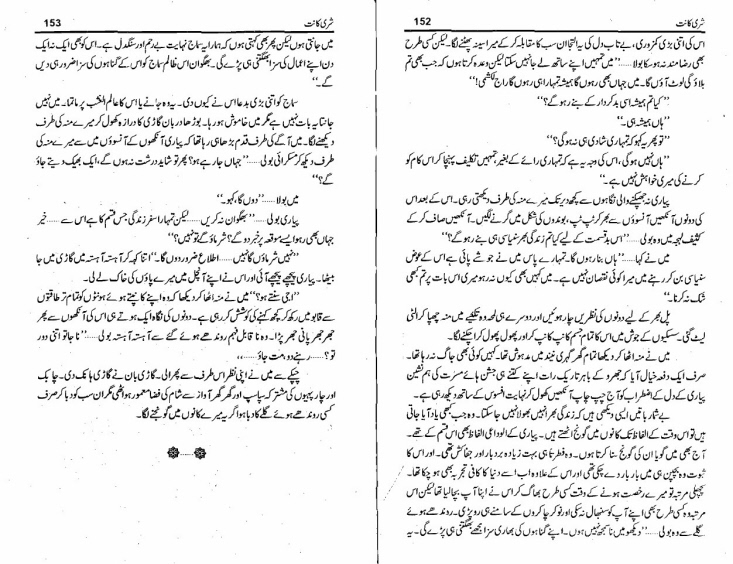 شری کانت
152
اس کی اتنی بڑی کمزوری، بے تاب دل کی یہ التجا ان سب کا مقابلہ کر کے میرا سینہ پھٹنے لگا۔ لیکن کسی طرح
بھی رضامند نہ ہو سکا بولا۔۔۔۔۔۔ ’’میں تمہیں اپنے ساتھ لے جا نہیں سکتا لیکن وعدہ کرتا ہوں کہ جب بھی تم
بلاؤ گی لوٹ آؤں گا۔ میں جہاں بھی رہوں گا ہمیشہ تمہارا ہی رہوں گا راج لکشمی!‘‘
’’کیا تم ہمیشہ اسی بدکردار کے بنے رہو گے؟‘‘
’’ہاں ہمیشہ ہی۔‘‘
’’تو پھر یہ کہو کہ تمہاری شادی ہی نہ ہو گی؟‘‘
’’ہاں نہیں ہو گی، اس کی وجہ یہ ہے کہ تمہاری رائے کے بغیر، تمہیں تکلیف پہنچا کر اس کام کو
کرنے کی میری خواہش نہیں ہے۔‘‘
پیاری نہ جھپکنے والی نگاہوں سے کچھ دیر تک میرے منہ کی طرف دیکھتی رہی۔ اس کے بعد اس
کی دونوں آنکھیں آنسوؤں سے بھر کر ٹپ ٹپ، بوندوں کی شکل میں گرنے لگیں۔ آنکھیں صاف کر کے
کثیف لہجہ میں وہ بولی۔۔۔۔۔۔ ’’اس بدقسمت کے لیے کیا تم زندگی بھر سنیاسی ہی بنے رہو گے؟‘‘
میں نے کہا۔۔۔۔۔۔ ’’ہاں بنا رہوں گا۔ تمہارے پاس میں نے جو شے پائی ہے اس کے عوض
سنیاسی بن کر رہنے میں میرا کوئی نقصان نہیں ہے۔ میں کہیں بھی کیوں نہ رہوں میری اس بات پر تم بھی
شک نہ کرنا۔‘‘
پل بھر کے لیے دونوں کی نظریں چار ہوئیں اور دوسرے ہی لمحہ وہ تکیے میں منہ چھپا کر الٹی
لیٹ گئی۔ سسکیوں کے جوش میں اس کا تمام جسم کانپ کانپ کر اور پھول پھول کر اچکنے لگا۔
میں نے منہ اٹھا کر دیکھا تمام گھر گہری نیند میں مدہوش تھا۔ کہیں کوئی بھی جاگ نہ رہا تھا۔
صرف ایک دفعہ خیال آیا کہ جھروکے باہر تاریک رات اپنے کتنے ہی جشن ہائے مسرت کی ہم نشین
پیاری کے دل کے اضطراب کو آج چپ چاپ آنکھیں کھول کر نہایت افسوس کے ساتھ دیکھ رہی ہے۔
بے شمار باتیں ایسی دیکھی ہیں کہ زندگی بھر انہیں بھولا نہیں جا سکتا۔ وہ جب بھی یاد آ جاتی
ہیں تو اس وقت کے الفاظ تک کانوں میں گونج اٹھتے ہیں۔ پیاری کے الوداعی الفاظ بھی اس قسم کے تھے۔
آج بھی میں گویا ان کی گونج سنا کرتا ہوں۔ وہ فطرتاً ہی بہت زیادہ بردبار اور جفاکش تھی۔ اور اس کا
ثبوت وہ بچپن ہی میں بار بار دے چکی تھی اور اس کے علاوہ اب اسے دنیا کا کافی تجربہ بھی ہو چکا تھا۔
پچھلی مرتبہ تو میرے رخصت ہونے کے وقت کسی طرح بھاگ کر اس نے اپنا آپ بچا لیا تھا لیکن اس
مرتبہ وہ کسی طرح بھی اپنے آپ کو سنبھال نہ سکی اور نوکر چاکروں کے سامنے ہی رو پڑی۔ روندھے ہوئے
گلے سے وہ بولی۔۔۔۔۔۔ ’’دیکھو میں ناسمجھ نہیں ہوں۔ اپنے گناہوں کی بھاری سزا مجھے بھگتنی ہی پڑے گی۔ یہ
شری کانت
153
میں جانتی ہوں لیکن پھر بھی کہتی ہوں کہ ہمارا یہ سماج نہایت بے رحم اور سنگدل ہے۔ اس کو بھی ایک نہ ایک
دن اپنے اعمال کی سزا بھگتنی ہی پڑے گی۔ بھگوان اس ظالم سماج کو اس کے گناہوں کی سزا ضرور ہی دیں
گے۔‘‘
سماج کو اتنی بڑی بددعا اس نے کیوں دی۔ یہ وہ جانے یا اس کا عالم الغیب پرماتما۔ میں نہیں
جانتا یہ بات نہیں ہے مگر میں خاموش ہو رہا۔ بوڑھا دربان گاڑی کا دروازہ کھول کر میرے منہ کی طرف
دیکھنے لگا۔ میں آگے کی طرف قدم بڑھا ہی رہا تھا کہ پیاری آنکھوں کے آنسوؤں میں سے میرے منہ کی
طرف دیکھ کر مسکرائی بولی۔۔۔۔۔۔ ’’جہاں جا رہے ہو؟ پھر تو شاید درشت نہ ہوں گے، ایک بھیک دیتے جاؤ
گے؟‘‘
میں بولا۔۔۔۔۔۔ ’’دوں گا، کہو۔‘‘
پیاری بولی۔۔۔۔۔۔ ’’بھگوان نہ کریں۔۔۔۔۔۔ لیکن تمہارا سفر زندگی جس قسم کا ہے اس سے۔۔۔۔۔۔ خیر
جہاں بھی رہو ایسے موقعہ پر خبر دو گے؟ شرماؤ گے تو نہیں؟‘‘
’’نہیں شرماؤں گا نہیں۔۔۔۔۔۔ اطلاع ضرور دوں گا۔‘‘ اتنا کہہ کر آہستہ آہستہ میں گاڑی میں جا
بیٹھا۔ پیاری پیچھے پیچھے آئی اور اس نے اپنے آنچل میں میرے پاؤں کی خاک لے لی۔
’’اجی سنتے ہو؟‘‘ میں نے منہ اٹھا کر دیکھا کہ وہ اپنے کانپتے ہوئے ہونٹوں کو تمام تر طاقتوں
سے قابو میں رکھ کر کچھ کہنے کی کوشش کر رہی ہے۔ دونوں کی نگاہ ایک ہوتے ہی اس کی آنکھوں سے پھر
جھر جھر پانی جھڑ پڑا۔ وہ ناقابل فہم روندھے ہوئے گلے سے آہستہ آہستہ بولی۔۔۔۔۔۔ ’’نا جاتو اتنی دور
تو؟۔۔۔۔۔۔ رہنے دو، مت جاؤ۔۔۔۔۔۔‘‘
چپکے سے میں نے اپنی نظر اس طرف سے پھرا لی۔ گاڑی بان نے گاڑی ہانک دی۔ چابک
اور چار پہیوں کی مشترکہ سپاسپ اور گھر گھر آواز سے شام کی فضا معمور ہو اٹھی مگر ان سب کو دبا کر صرف
کسی روندھے ہوئے گلے کا دبا ہوا گریہ میرے کانوں میں گونجنے لگا۔